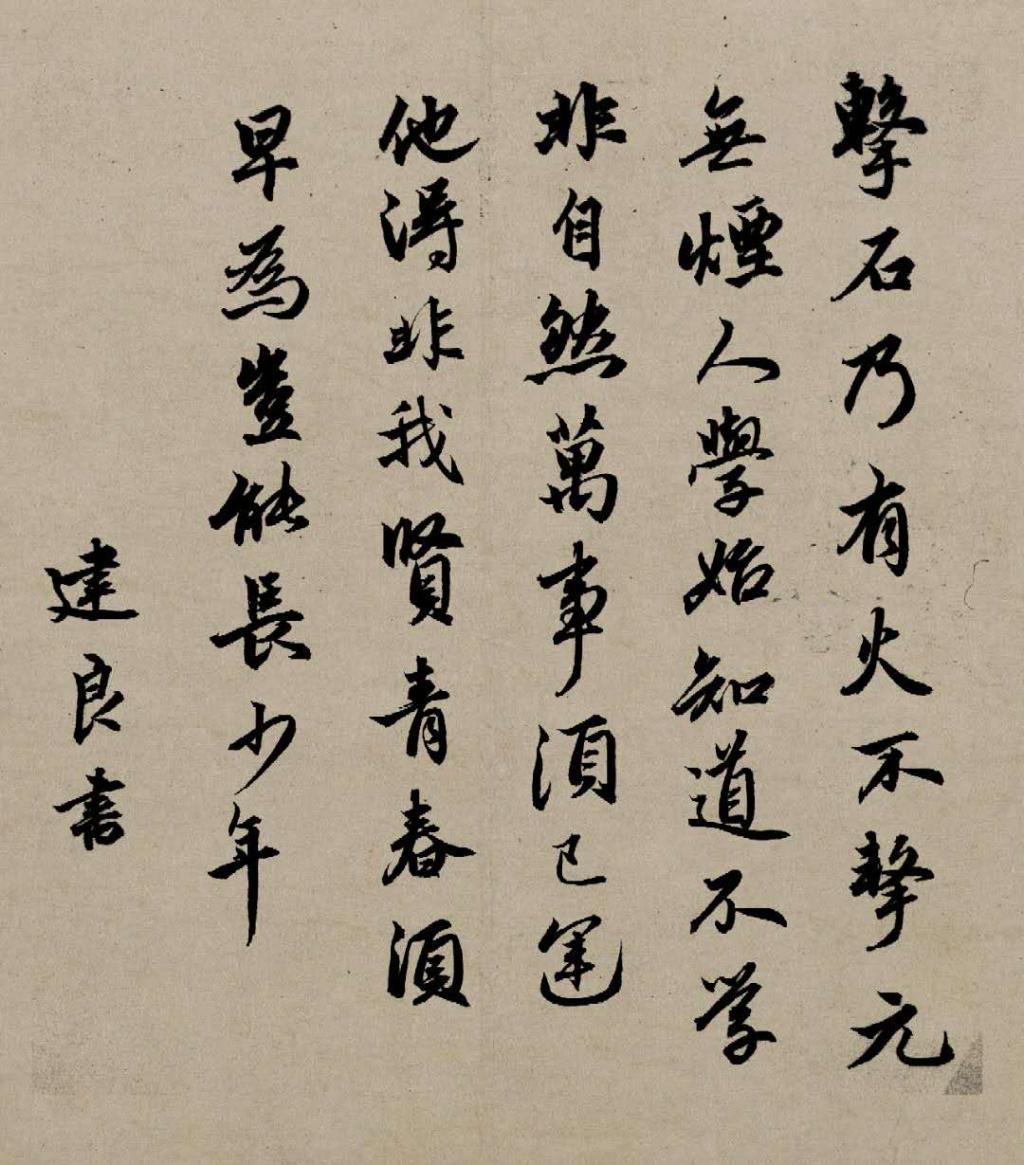 擊石乃有火不擊元
無煙人學始知道不學
非自然萬事須已運
他得非我賢青春須
早為豈能長少年
建良書